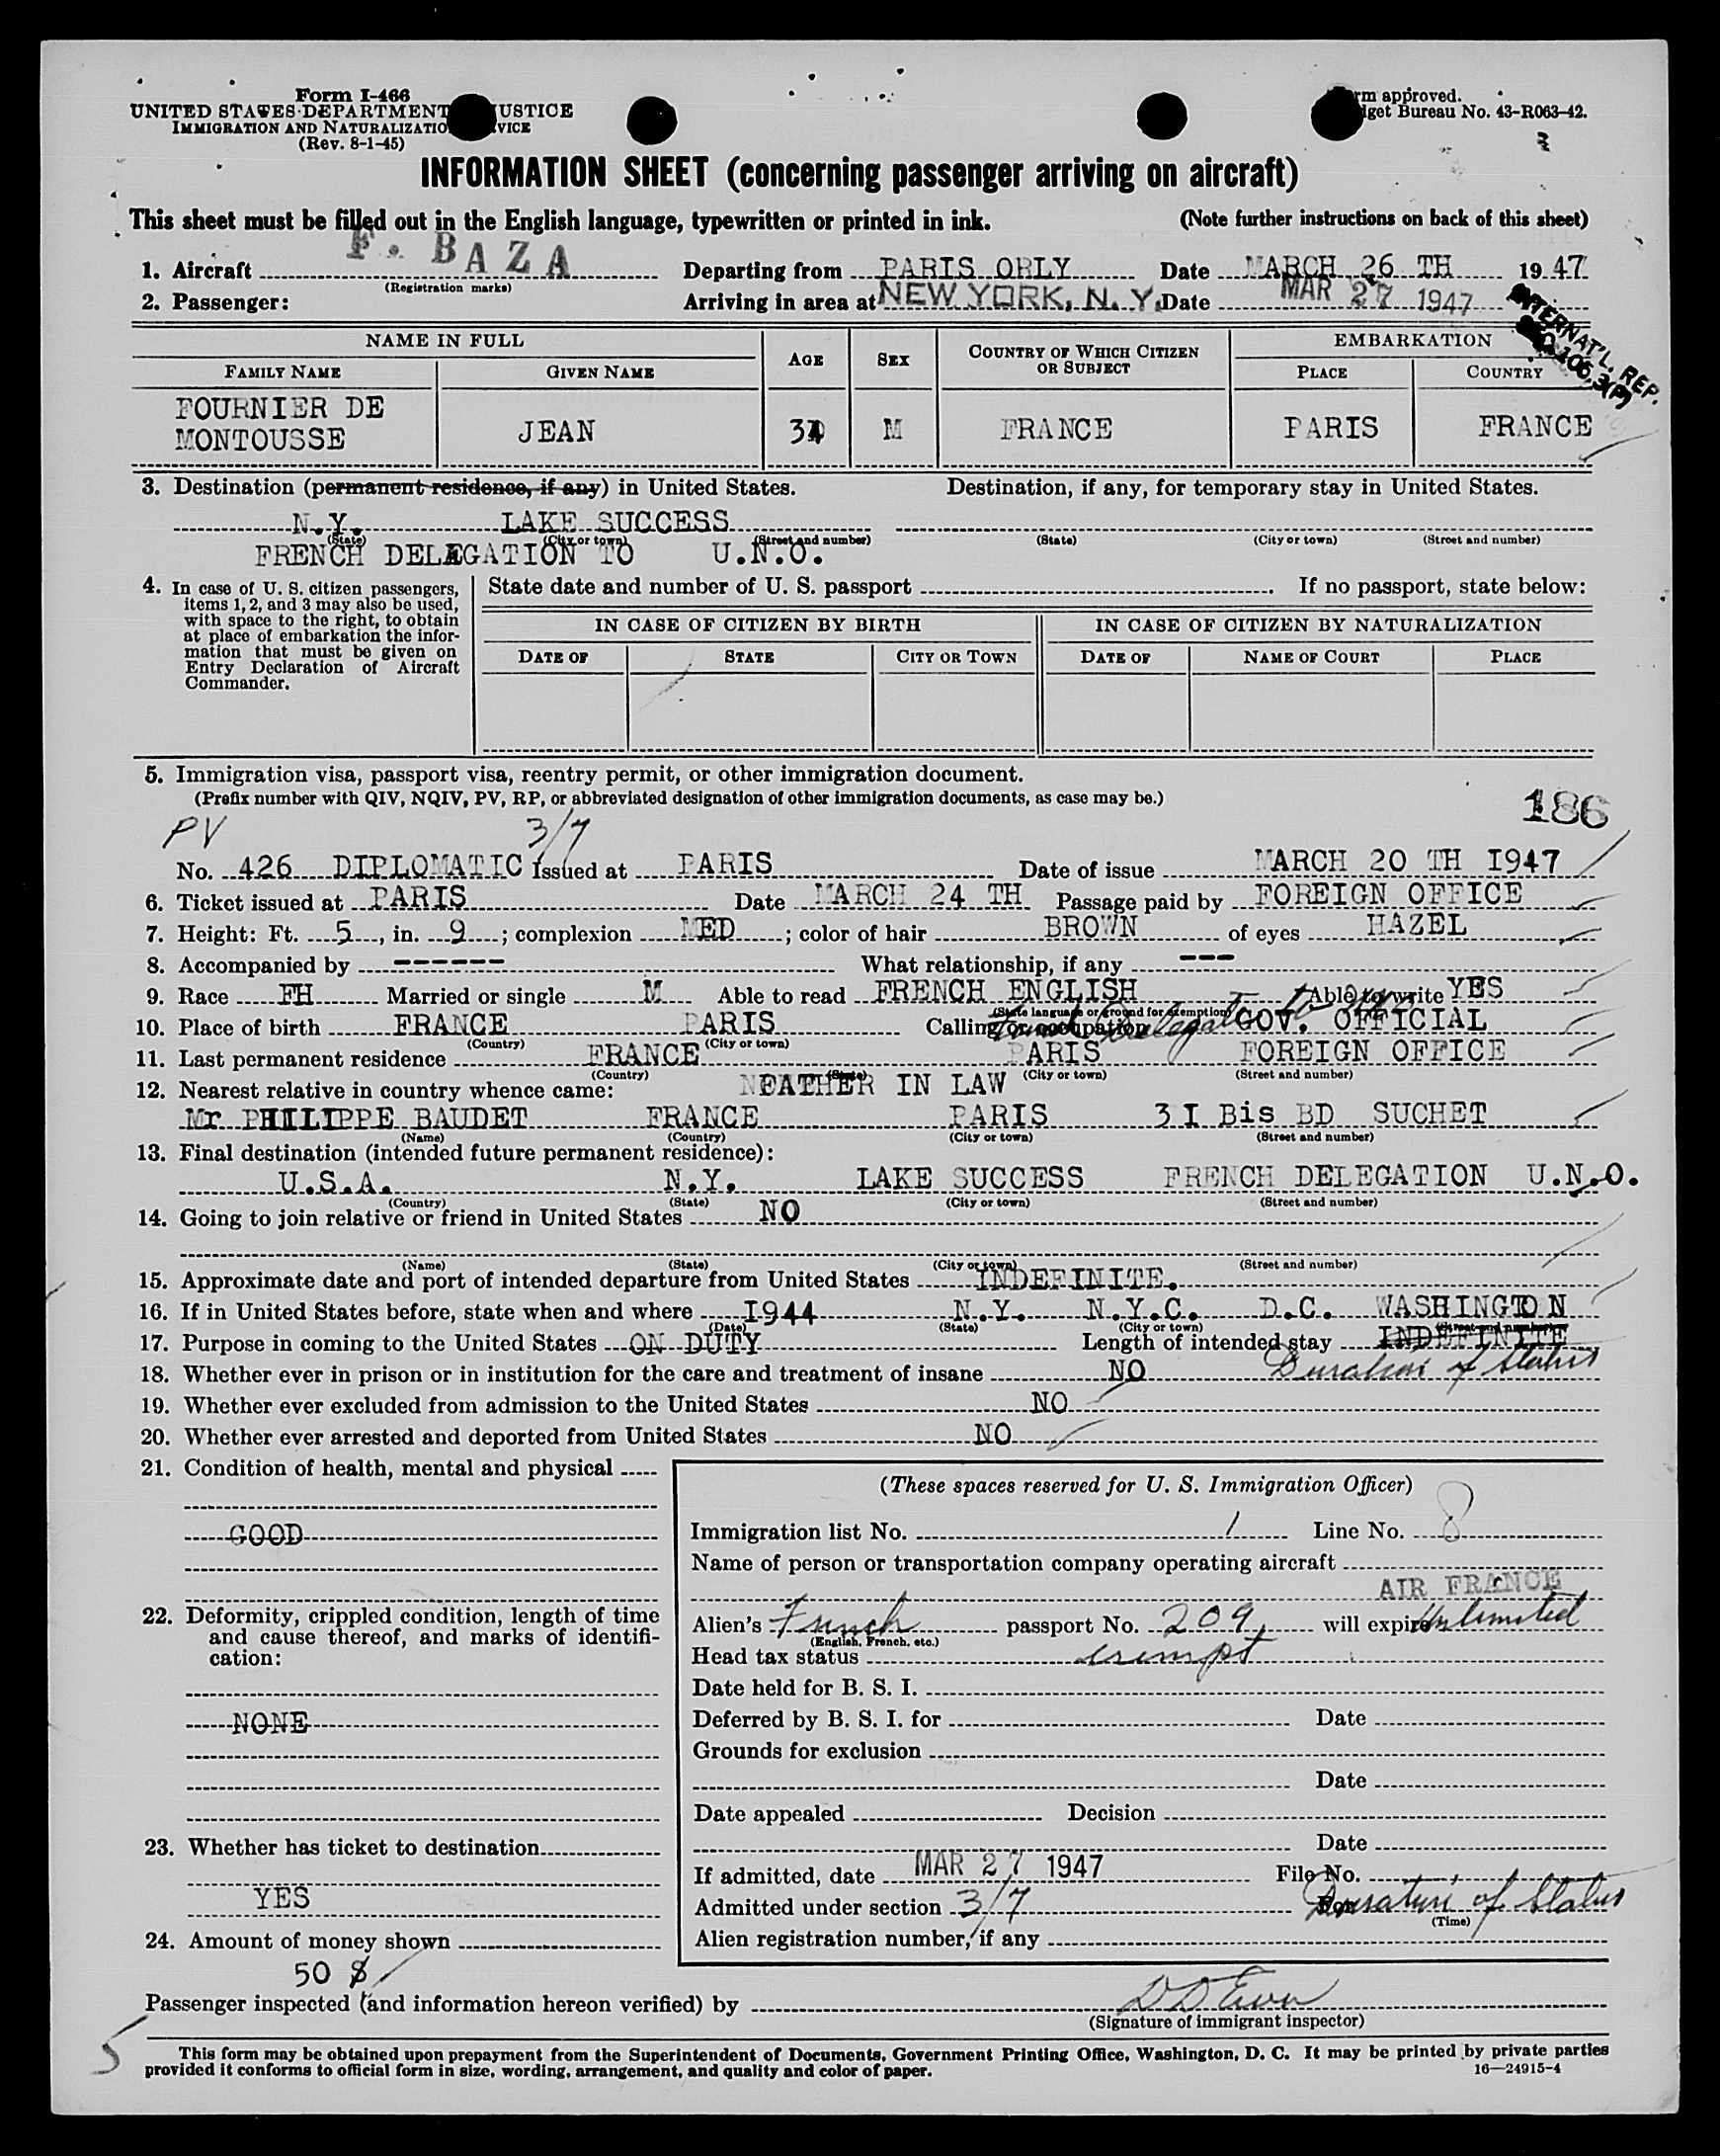 Form I-466
UNITED STATES DEPARTMENT USTICE
IMMIGRATION AND NATURALIZATIO VICE
(Rev. 8-1-45)
rm approved.
get Bureau No. 43-R063-42.
INFORMATION SHEET (concerning passenger arriving on aircraft)
This sheet must be filled out in the English language, typewritten or printed in ink. (Note further instructions on back of this sheet)
1. Aircraft F. BAZA Departing from PARIS ORLY Date MARCH 26 TH 1947
(Registration marks)
2. Passenger: Arriving in area at NEW YORK, N. Y. Date MAR 27 1947
INTERNAT'L. REP.
106.3(P)
NAME IN FULL AGE SEX COUNTRY OF WHICH CITIZEN OR SUBJECT EMBARKATION
FAMILY NAME GIVEN NAME PLACE COUNTRY
FOURNIER DE
MONTOUSSE JEAN M FRANCE PARIS FRANCE
3. Destination (permanent residence, if any) in United States. Destination, if any, for temporary stay in United States.
N.Y. LAKE SUCCESS
(State) (City or town) (Street and number) (State) (City or town) (Street and number)
FRENCH DELEGATION TO U.N.O.
4. In case of U. S. citizen passengers, items 1, 2, and 3 may also be used, with space to the right, to obtain at place of embarkation the information that must be given on Entry Declaration of Aircraft Commander.
State date and number of U. S. passport . If no passport, state below:
IN CASE OF CITIZEN BY BIRTH IN CASE OF CITIZEN BY NATURALIZATION
DATE OF STATE CITY OR TOWN DATE OF NAME OF COURT PLACE
5. Immigration visa, passport visa, reentry permit, or other immigration document.
(Prefix number with QIV, NQIV, PV, RP, or abbreviated designation of other immigration documents, as case may be.)
186
PV 3/7
No. 426 DIPLOMATIC Issued at PARIS Date of issue MARCH 20 TH I947
6. Ticket issued at PARIS Date MARCH 24 TH Passage paid by FOREIGN OFFICE
7. Height: Ft. 5, in. 9; complexion MED; color of hair BROWN of eyes HAZEL
8. Accompanied by ------ What relationship, if any ---
9. Race FH Married or single M Able to read FRENCH ENGLISH Able to write YES
(State language or ground for exemption)
10. Place of birth FRANCE PARIS Calling or occupation GOV. OFFICIAL
(Country) (City or town)
11. Last permanent residence FRANCE PARIS FOREIGN OFFICE
(Country) (State) (City or town) (Street and number)
12. Nearest relative in country whence came: IN LAW
Mr PHILIPPE BAUDET FRANCE PARIS 3I Bis BD SUCHET
(Name) (Country) (City or town) (Street and number)
13. Final destination (intended future permanent residence):
U.S.A. N.Y. LAKE SUCCESS FRENCH DELEGATION U.N.O.
(Country) (State) (City or town) (Street and number)
14. Going to join relative or friend in United States NO
(Name) (State) (City or town) (Street and number)
15. Approximate date and port of intended departure from United States INDEFINITE.
16. If in United States before, state when and where I944 N.Y. N.Y.C. D.C. WASHINGTON
(Date) (State) (City or town) (Street and number)
17. Purpose in coming to the United States ON DUTY Length of intended stay INDEFINITE
Duration of Status
18. Whether ever in prison or in institution for the care and treatment of insane NO
19. Whether ever excluded from admission to the United States NO
20. Whether ever arrested and deported from United States NO
21. Condition of health, mental and physical
GOOD
22. Deformity, crippled condition, length of time and cause thereof, and marks of identification:
NONE
23. Whether has ticket to destination
YES
24. Amount of money shown
50 $
(These spaces reserved for U. S. Immigration Officer)
Immigration list No. 1 Line No. 8
Name of person or transportation company operating aircraft
AIR FRANCE
Alien's French passport No. 209 will expire Unlimited
(English, French, etc.)
Head tax status exempt
Date held for B. S. I.
Deferred by B. S. I. for Date
Grounds for exclusion
Date
Date appealed Decision
Date
If admitted, date MAR 27 1947 File No.
Admitted under section 3/7 For Duration of Status
(Time)
Alien registration number, if any
Passenger inspected (and information hereon verified) by
(Signature of immigrant inspector)
5
This form may be obtained upon prepayment from the Superintendent of Documents, Government Printing Office, Washington, D. C. It may be printed by private parties
provided it conforms to official form in size, wording, arrangement, and quality and color of paper. 16—24915-4